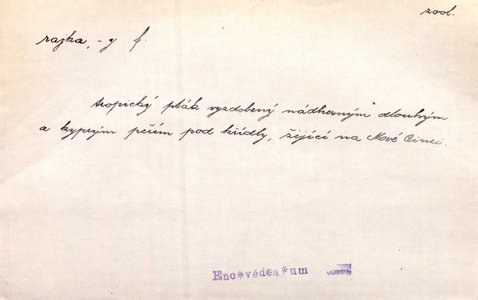 zool.
rajka, -y f.
tropický pták vyzdobený nádherným dlouhým
a kyprým peřím pod křídly, žijící na Nové Guinei.
Enc*vědea*um